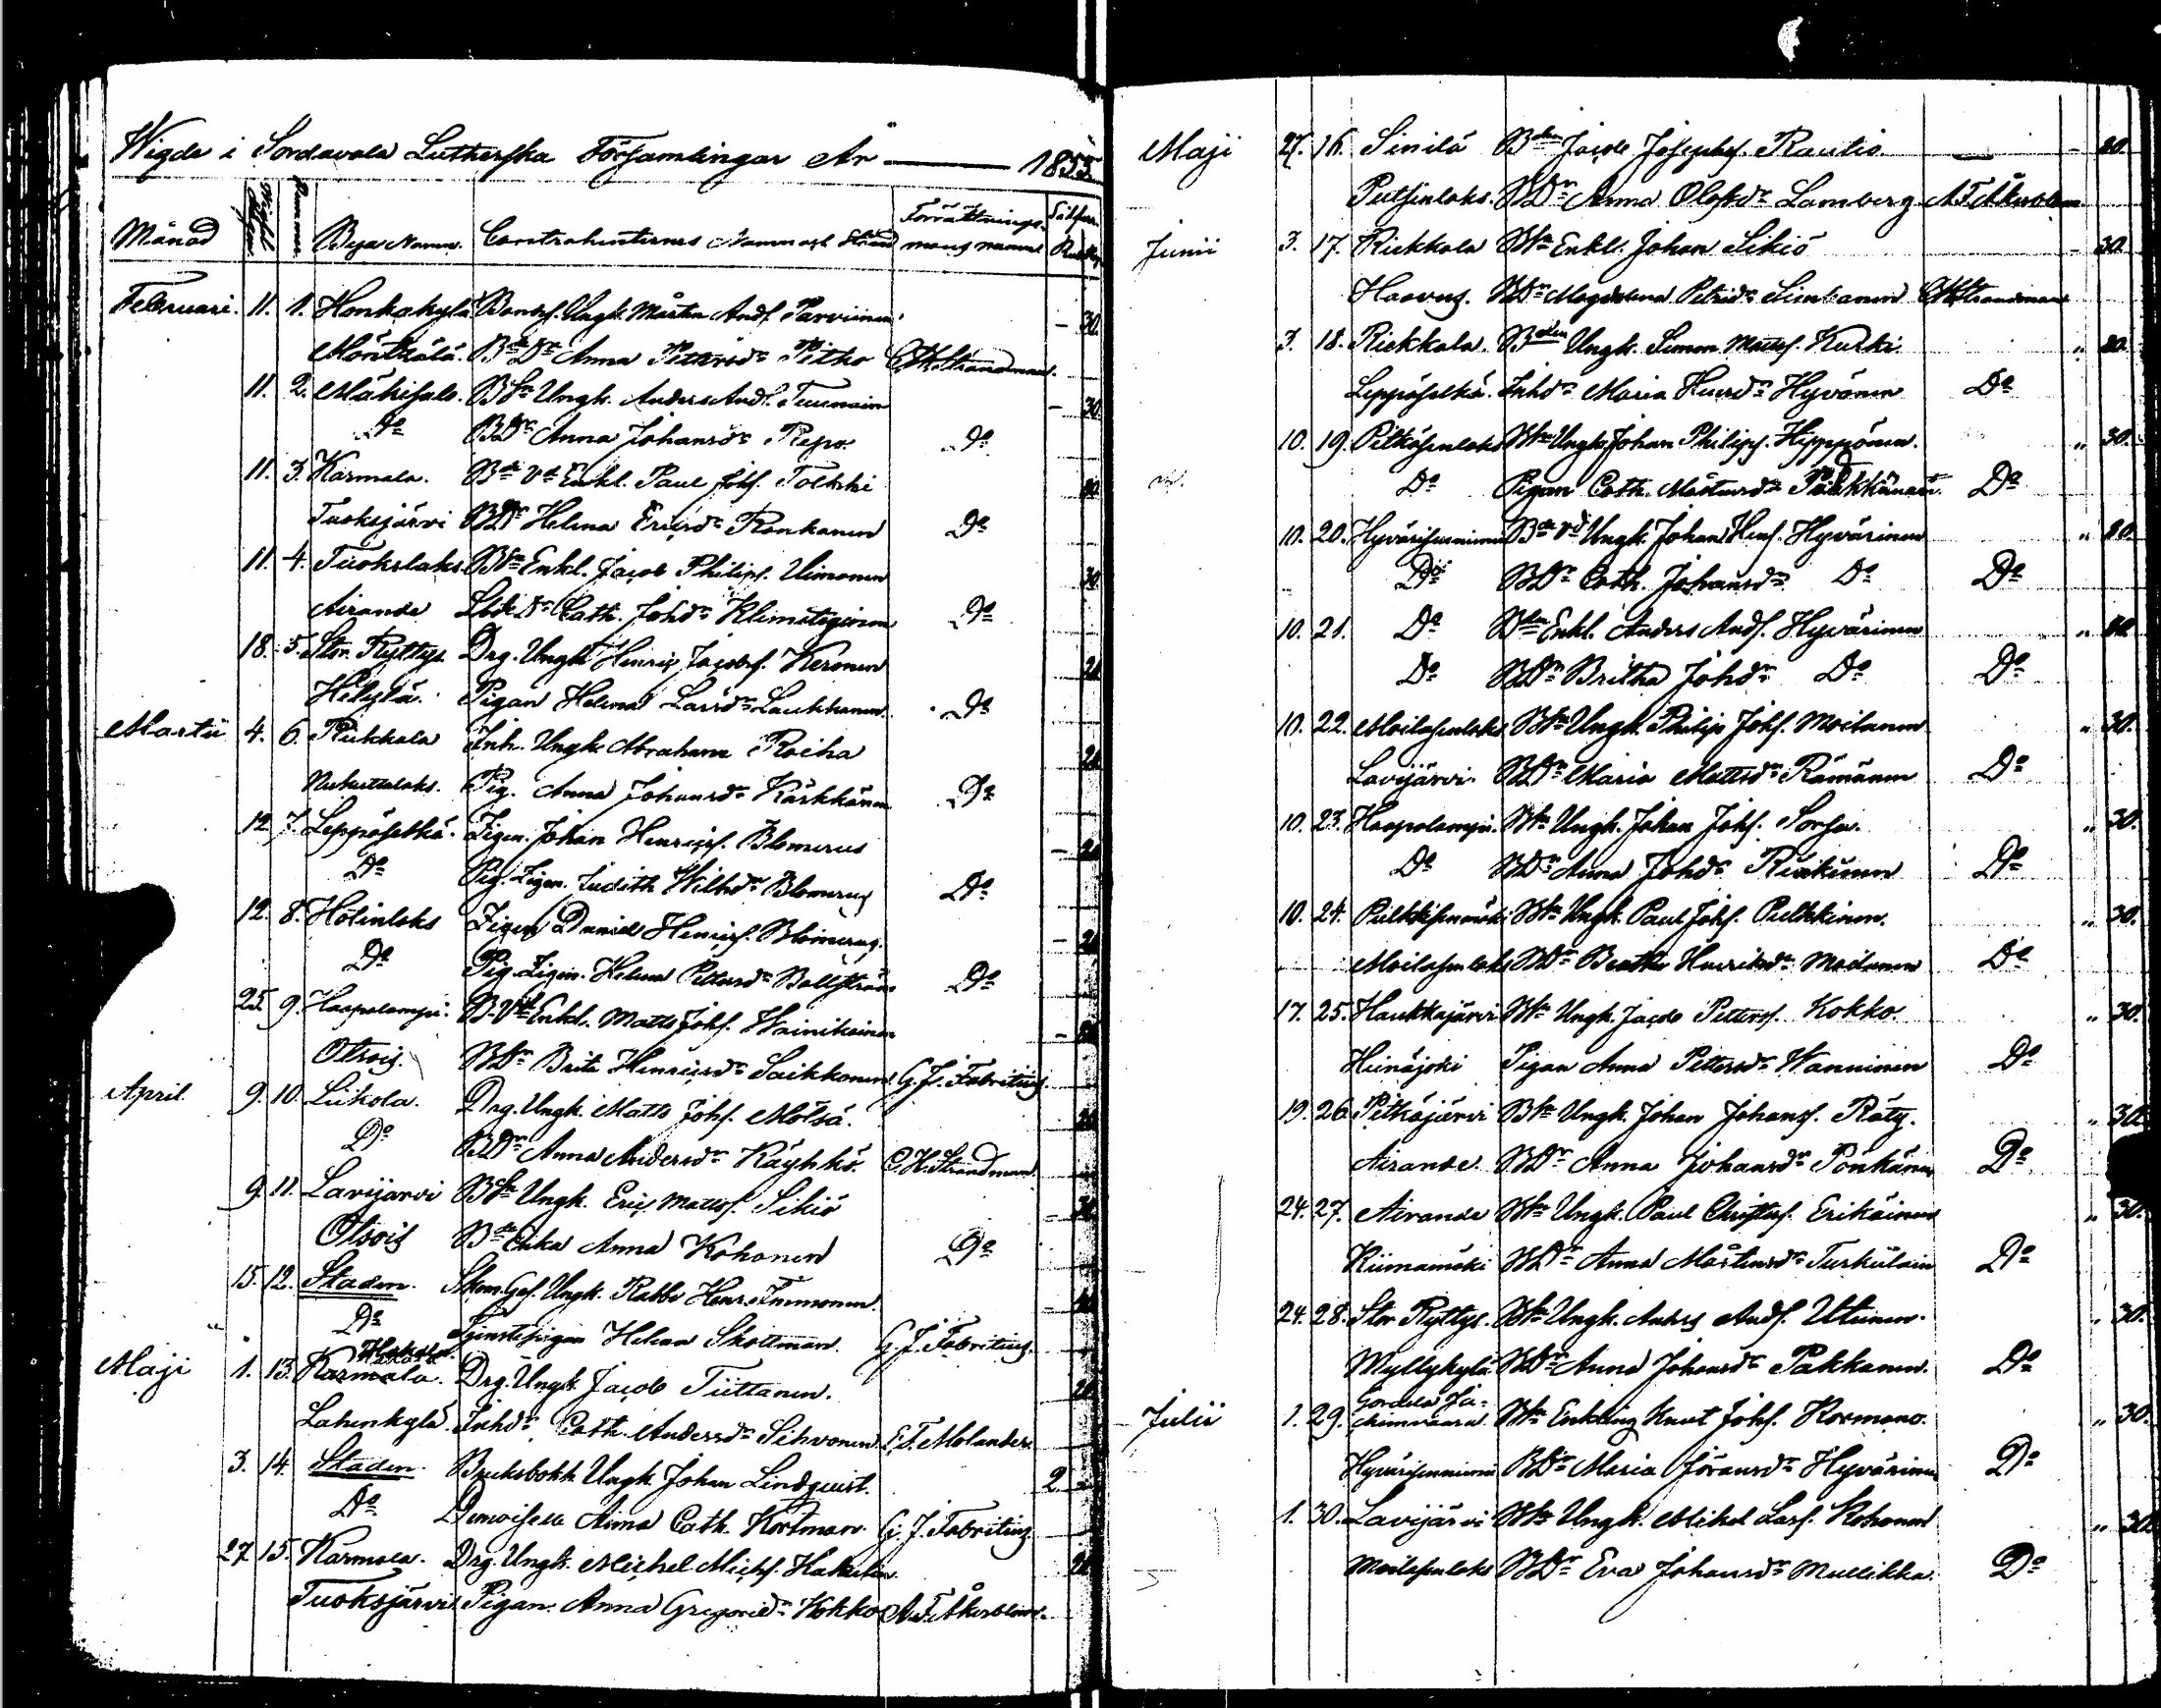 Wigda i Sordavala Lutherska Församlingar År — 1855.
Månad Bya Namn. Contrahenternes Namn och Stånd Förrättnings-mans namn
Februari. 11. 1. Honkakylä Bondes. Ungk. Mårten Ands. Parviainen — 30.
Mäntsälä. BdeDr Anna Pettersdr Pitko C.H. Strandman.
11. 2. Mäkisalo. BSn Ungk. Anders Ands. — 30.
Do BDr Anna Johansdr Repo. Do
11. 3. Karmala. Bde Enkl. Paul Johs. Tolkki 30
Tuoksjärvi BDr Helena Ericsdr Ronkanen Do
11. 4. Tuokslaks. BSn Enkl. Jacob Philips. Uimonen 30
Airanda Cath. Johdr Do
18. 5. Stor Ryttys. Drg. Ungk Henric Jacobs. Keronen 20
Helylä. Pigan Helena Larsdr Laukkanen. Do
Martii 4. 6. Riekkala Inh. Ungk. Abraham Roiha 20
Pig. Anna Johansdr Kärkkänen Do
12. 7. Leppäselkä. Zigen. Johan Henrics. Blomerus — 20
Do Pig. Zigen. Judith Wilhdr Blomerus Do
12. 8. Hotinlaks Zigen Daniel Henrics. Blomerus. — 20
Do Pig. Zigen. Helena Pettersdr Do
25. 9. Haapalampi. Enkl. Matts Johs. Wainikainen —
Otsois. BDr Brita Henricsdr Saikkonen G.J. Fabritius.
April. 9. 10. Liikola. Drg. Ungk. Matts Johs. Mölsä. 20
Do BDr Anna Andersdr Käyhkö. C.H. Strandman.
9. 11. Lavijärvi BSn Ungk. Eric Matts. Sikiö — 30
Otsois Bde Enka Anna Kohonen Do
15. 12. Staden. Skom. Ges. Ungk. Henr. Immonen. —
Do Tjenstepigan Helena Skottman. G.J. Fabritius.
Maji 1. 13. Karmala. Drg. Ungk. Jacob Tiittanen. 20
Lahenkylä Inhdr Cath. Andersdr Sihvonen E.F. Molander.
3. 14. Staden. Bruksbokh. Ungk. Johan Lindquist. 2
Do Demoiselle Anna Cath. Hortman. G.J. Fabritius.
27. 15. Karmala. Drg. Ungk. Michel Michs. Hakulin. 20
Tuoksjärvi. Pigan. Anna Gregoridr Kokko A.F. Åkerblom.
Maji 27. 16. Sinilä Bden Jacob Josephs. Rautio. — 30.
Putsinlaks. BDr Anna Olofsdr Lamberg A.F. Åkerblom
Junii 3. 17. Riekkala BSn Enkl. Johan Sikiö — 30.
Haavus. BDr Magdalena Petridr Simkanen C.H. Strandman
3. 18. Riekkala. Bden Ungk. Simon Matts. Kurki. " 30
Leppäselkä. Inhdr Maria Henrdr Hyvönen Do
10. 19. Pitkäsenlaks BSn Ungk. Johan Philips. Hyppönen. " 30.
Do Pigan Cath. Mårtensdr Do
10. 20. Hyvärisenniemi Bde Ungk. Johan Henr. Hyvärinen " 30.
Do BDr Cath. Johansdr Do Do
10. 21. Do Bden Enkl. Anders Ands. Hyvärinen " 30
Do BDr Britha Johdr Do Do
10. 22. Moilasenlaks BSn Ungk. Philip Johs. Moilanen " 30.
Lavijärvi. BDr Maria Mattsdr Rämänen Do
10. 23. Haapalampi. BSn Ungk. Johan Johs. Sorsa. " 30.
Do BDr Anna Johdr Do
10. 24. Pulkkisenmäki BSn Ungk. Paul Johs. Pulkkinen. " 30.
Moilasenlaks BDr Beatha Henriksdr Moilanen Do
17. 25. Haukkajärvi BSn Ungk. Jacob Petters. Kokko. " 30.
Heinäjoki Pigan Anna Pettersdr Wanninen Do
19. 26. Pitkäjärvi BSn Ungk. Johan Johans. Räty. " 30.
Airanda. BDr Anna Johansdr Pönkänen Do
24. 27. Airanda BSn Ungk. Paul Christers. Erikäinen " 30.
Kiimamäki BDr Anna Mårtensdr Turkulain Do
24. 28. Stor Ryttys. BSn Ungk. Anders Ands. Uttunen. " 30.
Myllykylä BDr Anna Johansdr Pakkanen. Do
Julii 1. 29. BSn Enkling Knut Johs. Kormano. " 30.
Hyvärisenniemi BDr Maria Göransdr Hyvärinen Do
1. 30. Lavijärvi BSn Ungk. Mikel Lars. Kohonen " 30.
Moilasenlaks BDr Eva Johansdr Mullikka. Do